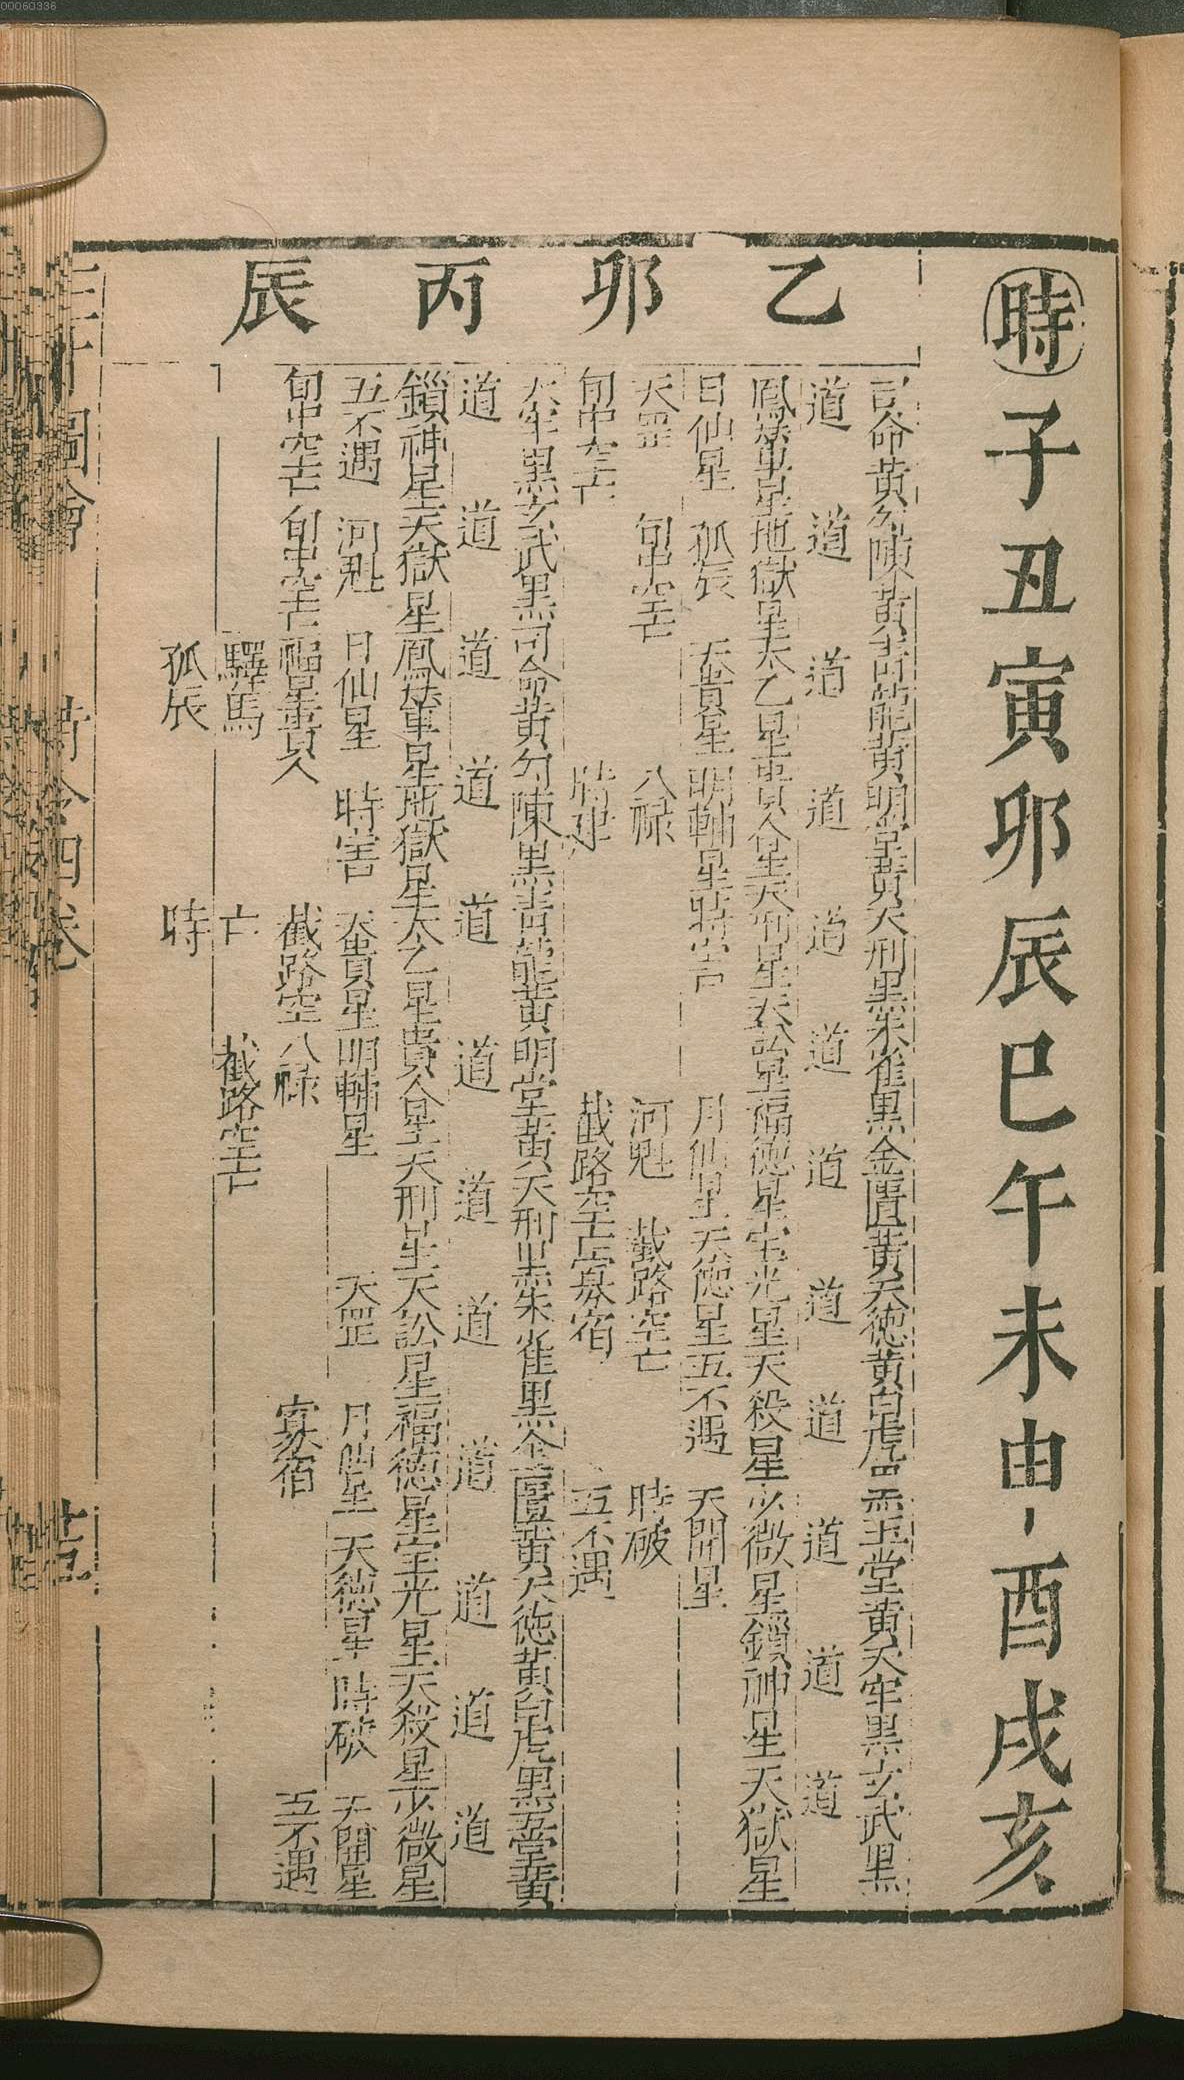 00060336
時子丑寅卯辰巳午未申酉戌亥
乙卯丙辰
司命黃勾陳黃青龍黃明堂黃天刑黑朱雀黑金匱黃天德黃白虎玉堂黃天牢黑玄武黑
道道道道道道道道道道道道
鳳輦星地獄星太乙星貴人星天刑星天訟星福德星宝光星天殺星少微星鎖神星天獄星
日仙星孤辰天貴星明輔星時害月仙星天德星五不遇天開星
天罡旬中空亡八禄河魁截路空亡時破
旬中空亡時建截路空亡寡宿五不遇
天牢黑玄武黑司命黃勾陳黑青龍黃明堂黃天刑黑朱雀黑金匱黃天德黃白虎黑玉堂黃
道道道道道道道道道道道道
鎖神星天獄星鳳輦星地獄星太乙星貴人星天刑星天訟星福德星宝光星天殺星少微星
五不遇河魁日仙星時害天貴星明輔星天罡月仙星天德星時破天開星
旬中空亡旬中空亡福星貴人截路空八禄寡宿五不遇
驛馬亡截路空亡
孤辰時
三才圖會時令四卷